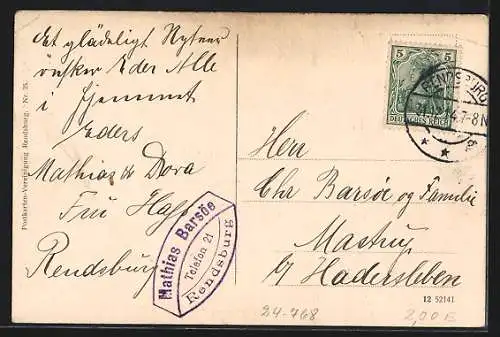 Et glædeligt Nytaar
ønsker Eder Alle
i Hjemmet
Eders
Mathias & Dora
Rendsburg
Postkarten-Vereinigung Rendsburg. Nr. 35.
Mathias Barsöe
Telefon 21
Rendsburg
5 5
DEUTSCHES REICH
RENDSBURG
7-8N
Herr
Chr Barsøe og Familie
Mastrup
b/ Hadersleben
12 52141
24-768
2,00 E